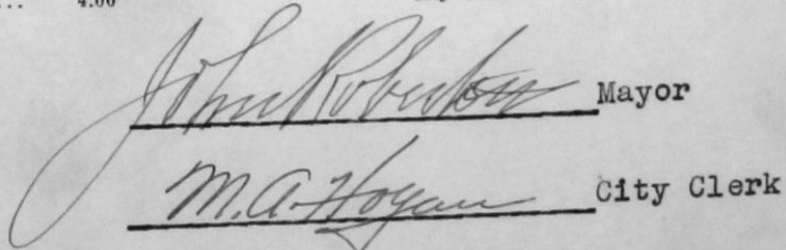 ... 4.00
John Robertson Mayor
M.A. Hogan City Clerk